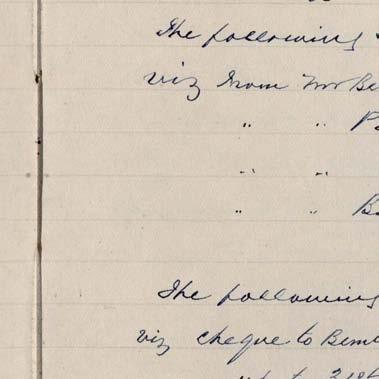 The following
viz from Mr Be
" " P
" "
" " B
The following
viz cheque to Bem
up to 31st